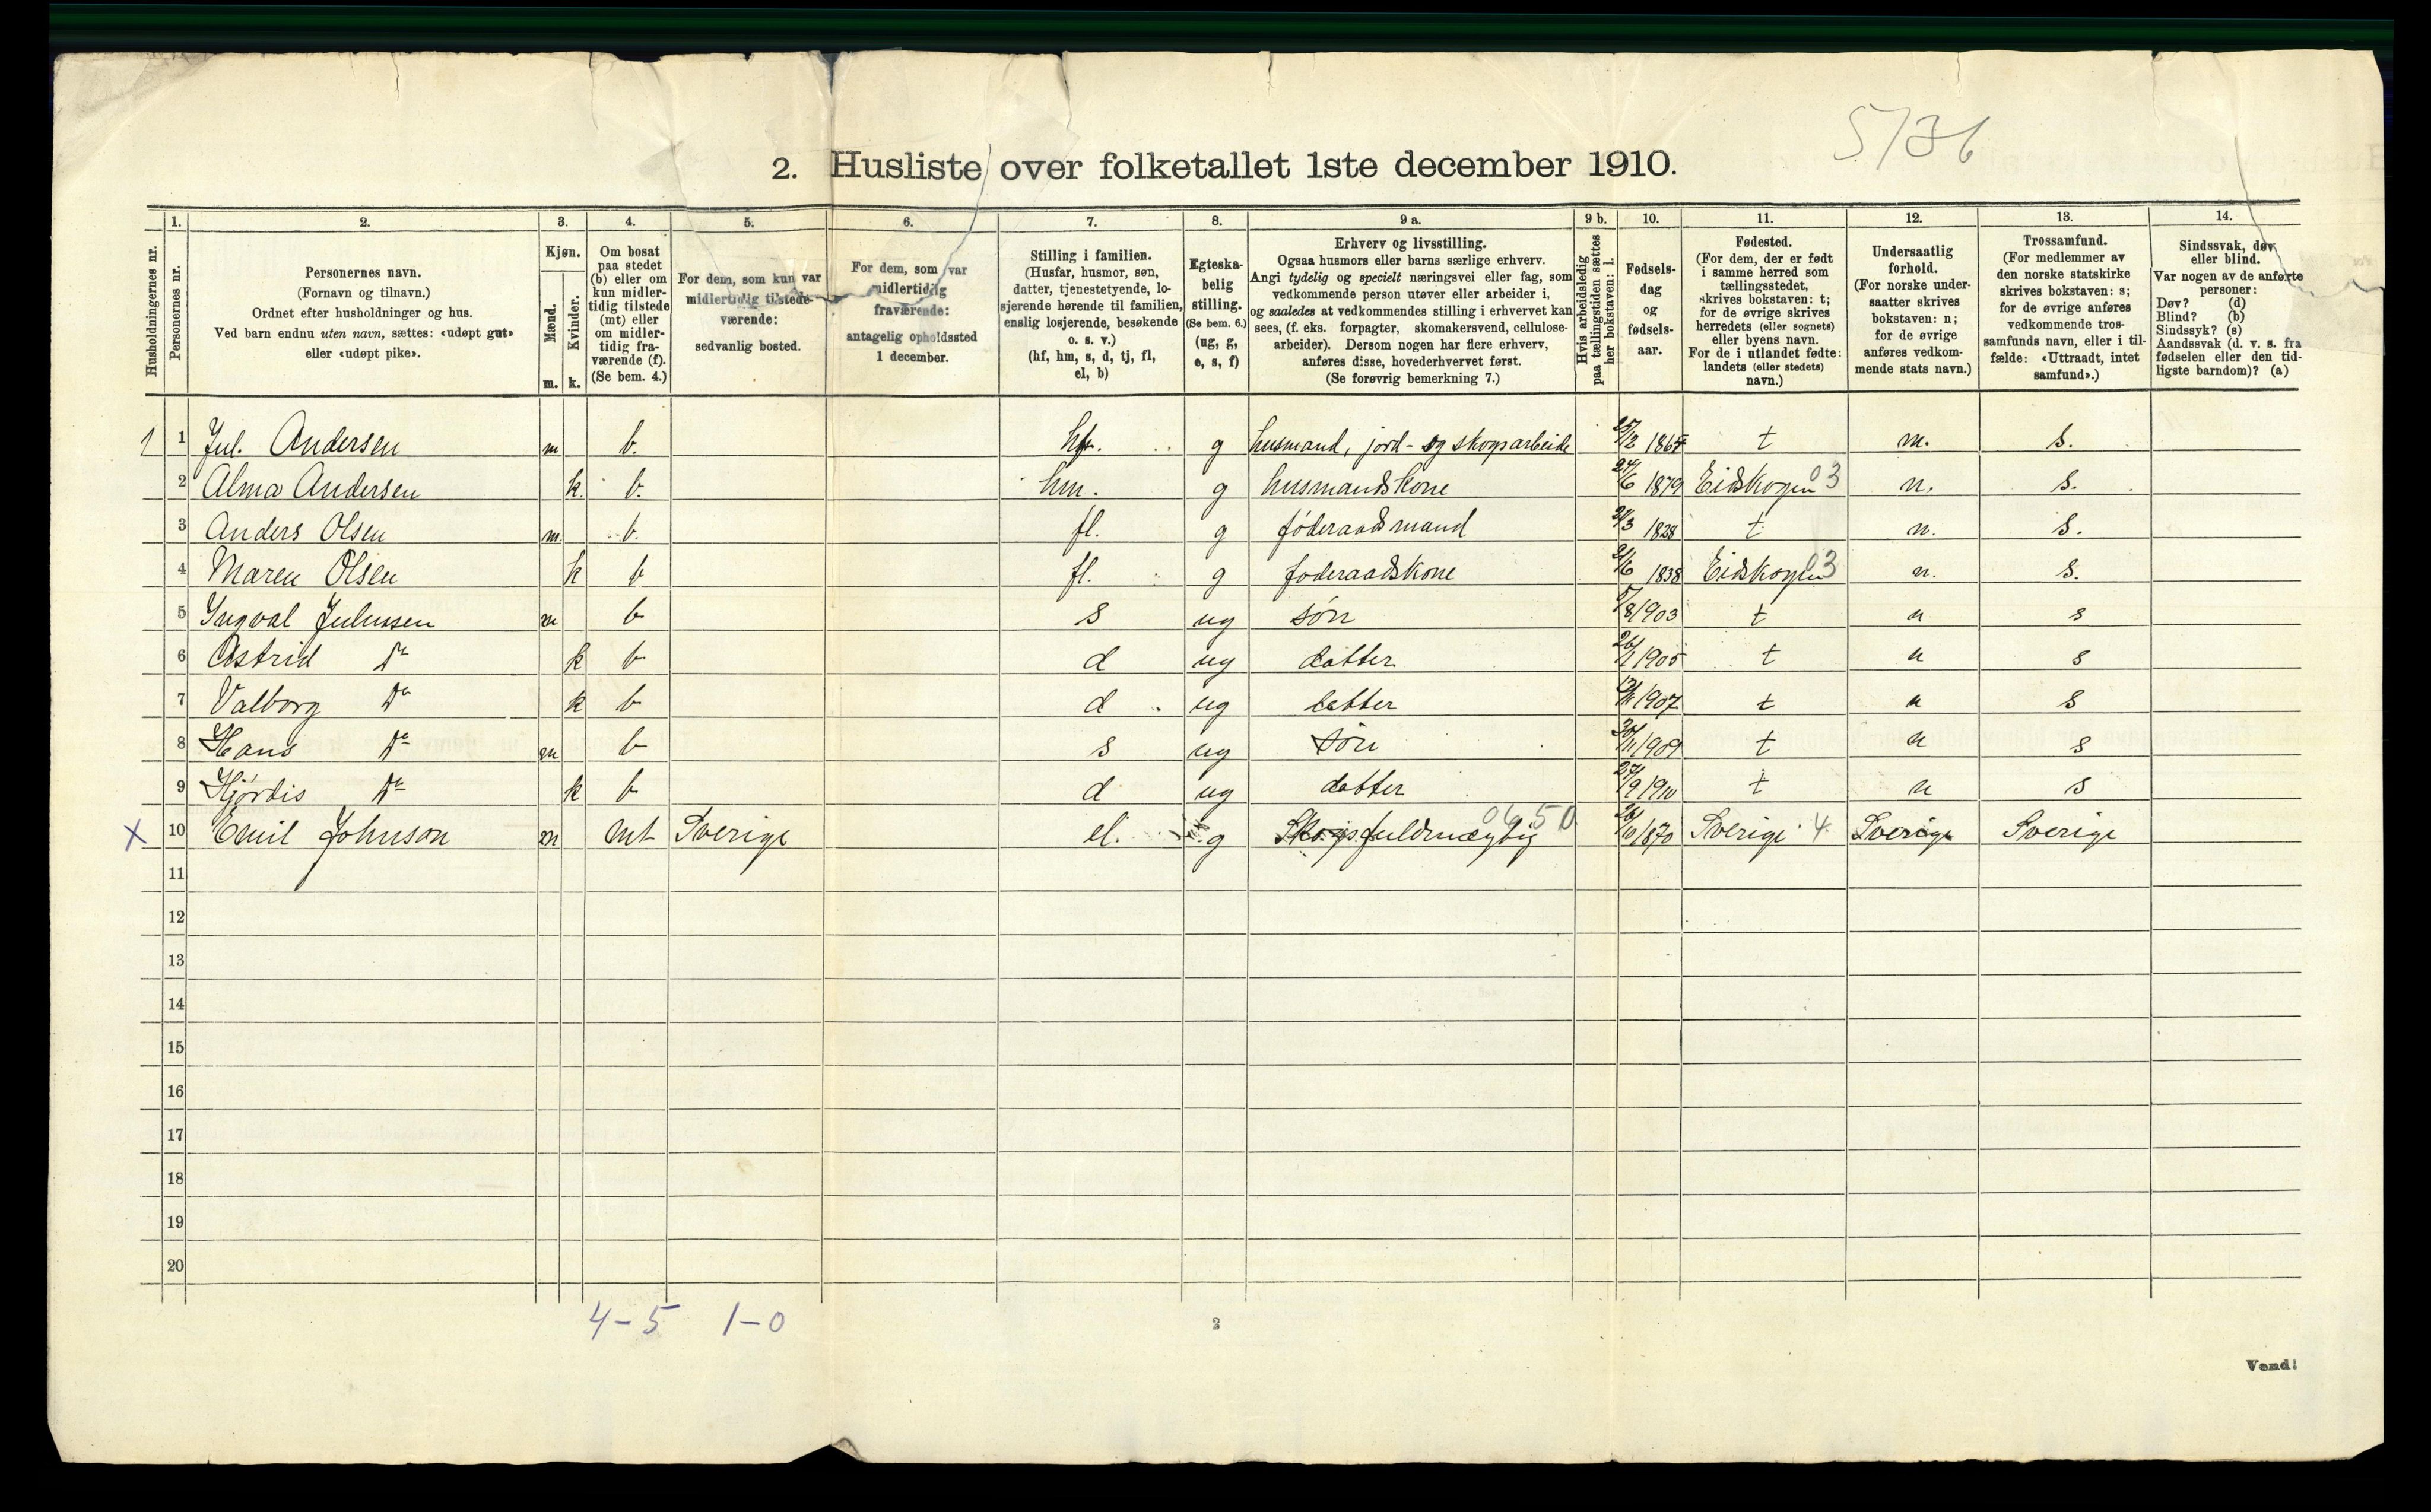 5/36
2. Husliste over folketallet 1ste december 1910.
Husholdningernes nr.
1. Personernes nr.
2. Personernes navn.
(Fornavn og tilnavn.)
Ordnet efter husholdninger og hus.
Ved barn endnu uten navn, sættes: «udøpt gut»
eller «udøpt pike».
3. Kjøn.
Mænd. m.
Kvinder. k.
4. Om bosat
paa stedet
(b) eller om
kun midler-
tidig tilstede
(mt) eller
om midler-
tidig fra-
værende (f).
(Se bem. 4.)
5. For dem, som kun var
midlertidig tilstede-
værende:
sedvanlig bosted.
6. For dem, som var
midlertidig
fraværende:
antagelig opholdssted
1 december.
7. Stilling i familien.
(Husfar, husmor, søn,
datter, tjenestetyende, lo-
sjerende hørende til familien,
enslig losjerende, besøkende
o. s. v.)
(hf, hm, s, d, tj, fl,
el, b)
8. Egteska-
belig
stilling.
(Se bem. 6.)
(ug, g,
e, s, f)
9 a. Erhverv og livsstilling.
Ogsaa husmors eller barns særlige erhverv.
Angi tydelig og specielt næringsvei eller fag, som
vedkommende person utøver eller arbeider i,
og saaledes at vedkommendes stilling i erhvervet kan
sees, (f. eks. forpagter, skomakersvend, cellulose-
arbeider). Dersom nogen har flere erhverv,
anføres disse, hovederhvervet først.
(Se forøvrig bemerkning 7.)
9 b. Hvis arbeidsledig
paa tællingstiden sættes
her bokstaven: l.
10. Fødsels-
dag
og
fødsels-
aar.
11. Fødested.
(For dem, der er født
i samme herred som
tællingsstedet,
skrives bokstaven: t;
for de øvrige skrives
herredets (eller sognets)
eller byens navn.
For de i utlandet fødte:
landets (eller stedets)
navn.)
12. Undersaatlig
forhold.
(For norske under-
saatter skrives
bokstaven: n;
for de øvrige
anføres vedkom-
mende stats navn.)
13. Trossamfund.
(For medlemmer av
den norske statskirke
skrives bokstaven: s;
for de øvrige anføres
vedkommende tros-
samfunds navn, eller i til-
fælde: «Uttraadt, intet
samfund».)
14. Sindssvak, døv
eller blind.
Var nogen av de anførte
personer:
Døv? (d)
Blind? (b)
Sindssyk? (s)
Aandssvak (d. v. s. fra
fødselen eller den tid-
ligste barndom)? (a)
1 1 Jul. Andersen m b. hf. g husmand, jord- og skogsarbeide 25/12 1867 t n. s.
2 Alma Andersen k. b. hm. g husmandskone 24/6 1879 Eidskogen 03 n. s.
3 Anders Olsen m. b. fl. g føderaadsmand 21/3 1828 t n. s.
4 Maren Olsen k b fl. g føderaadskone 21/6 1838 Eidskogen 03 n. s.
5 Ingval Juliussen m b s ug søn 5/8 1903 t n s
6 Astrid Do k b d ug datter 26/1 1905 t n s
7 Valborg Do k b d ug datter 1907 t n s
8 Hans Do m b s ug søn 30/11 1909 t n s
9 Hjørdis Do k b d ug datter 27/9 1910 t n s
X 10 Emil Johnson m mt Sverige el. g Skogsfuldmægtig 0650 26/10 1870 Sverige 4 Sverige Sverige
11
12
13
14
15
16
17
18
19
20
4-5 1-0
2
Vend!